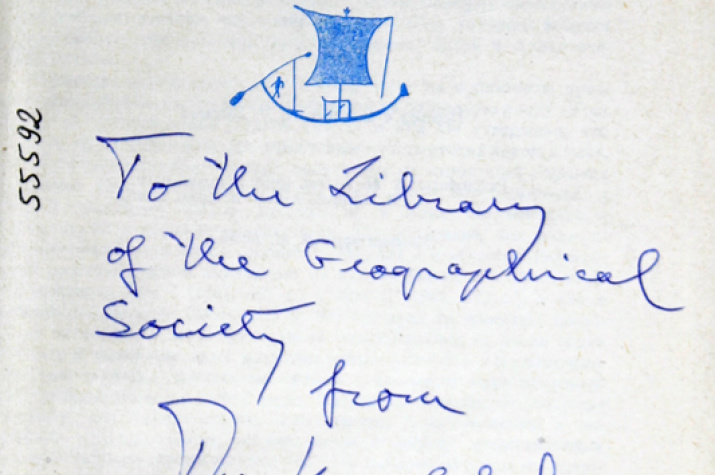 55592
To the Library
of the Geographical
Society
from